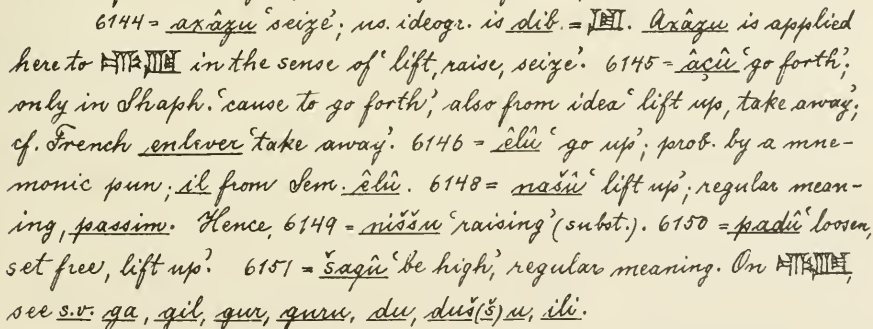 6144 = axâzu 'seize'; us. ideogr. is dib. = 𒇻. Axâzu is applied
here to in the sense of 'lift, raise, seize'. 6145 = âçû 'go forth';
only in Shaph. 'cause to go forth', also from idea 'lift up, take away';
cf. French enlever 'take away'. 6146 = êlû 'go up'; prob. by a mne-
monic pun; il from Sem. êlû. 6148 = našû 'lift up'; regular mean-
ing, passim. Hence, 6149 = niššu 'raising' (subst.). 6150 = padû 'loosen,
set free, lift up'. 6151 = šaqû 'be high', regular meaning. On
see s.v. ga, gil, gur, guru, du, duš(š)u, ili.